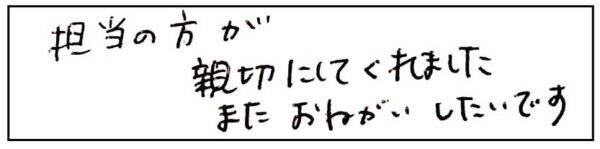 担当の方が
親切にしてくれました
また おねがい したいです